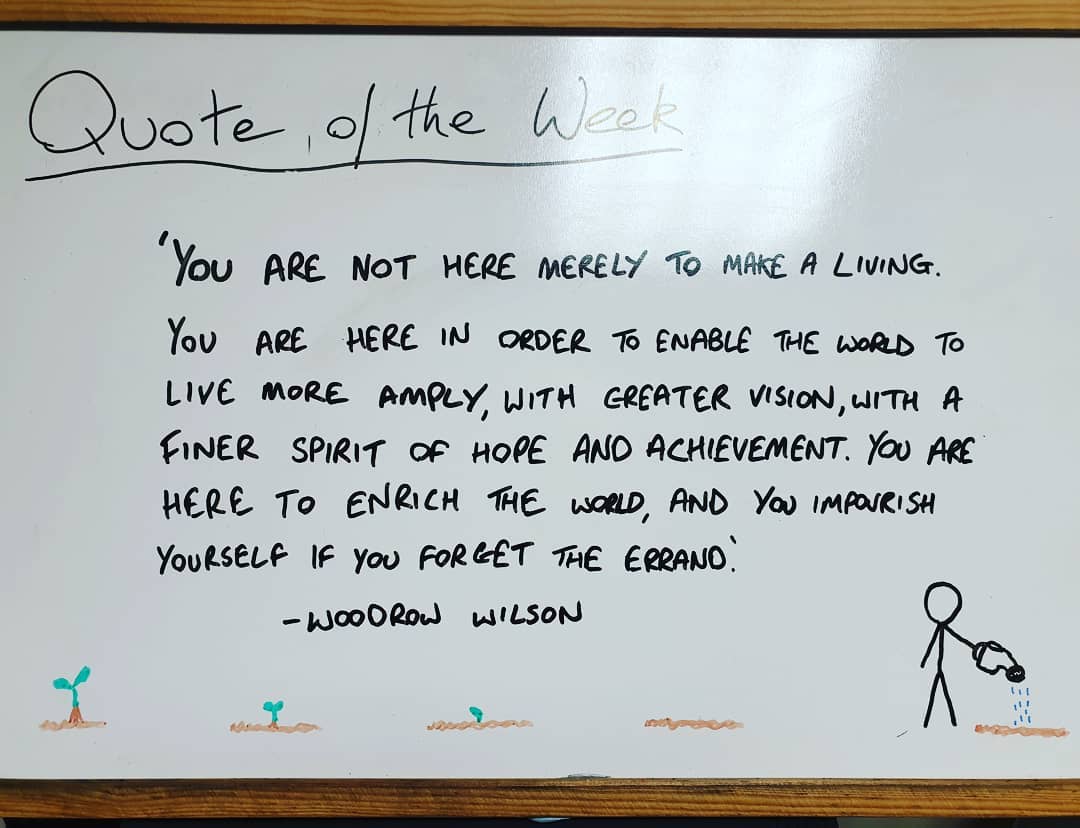 Quote of the Week
'YOU ARE NOT HERE MERELY TO MAKE A LIVING.
YOU ARE HERE IN ORDER TO ENABLE THE WORLD TO
LIVE MORE AMPLY, WITH GREATER VISION, WITH A
FINER SPIRIT OF HOPE AND ACHIEVEMENT. YOU ARE
HERE TO ENRICH THE WORLD, AND YOU IMPOVRISH
YOURSELF IF YOU FORGET THE ERRAND.'
-WOODROW WILSON